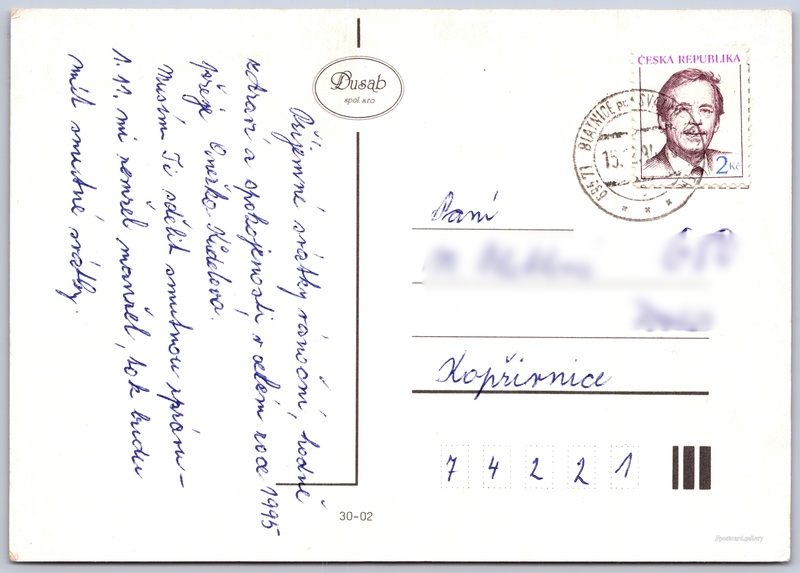 Příjemné svátky vánoční, hodně
zdraví a spokojenosti, v celém roce 1995
přeje Anežka Kudelova.
Musím Ti sdělit smutnou zprávu –
1. 11. mi zemřel manžel, tak budu
mít smutné svátky.
Dusab
spol. s.r.o
ČESKÁ REPUBLIKA
2 Kč
696 71 BLATNICE pod SV.
15.
Paní
Kopřivnice
7 4 2 2 1
30-02
//postcard.gallery